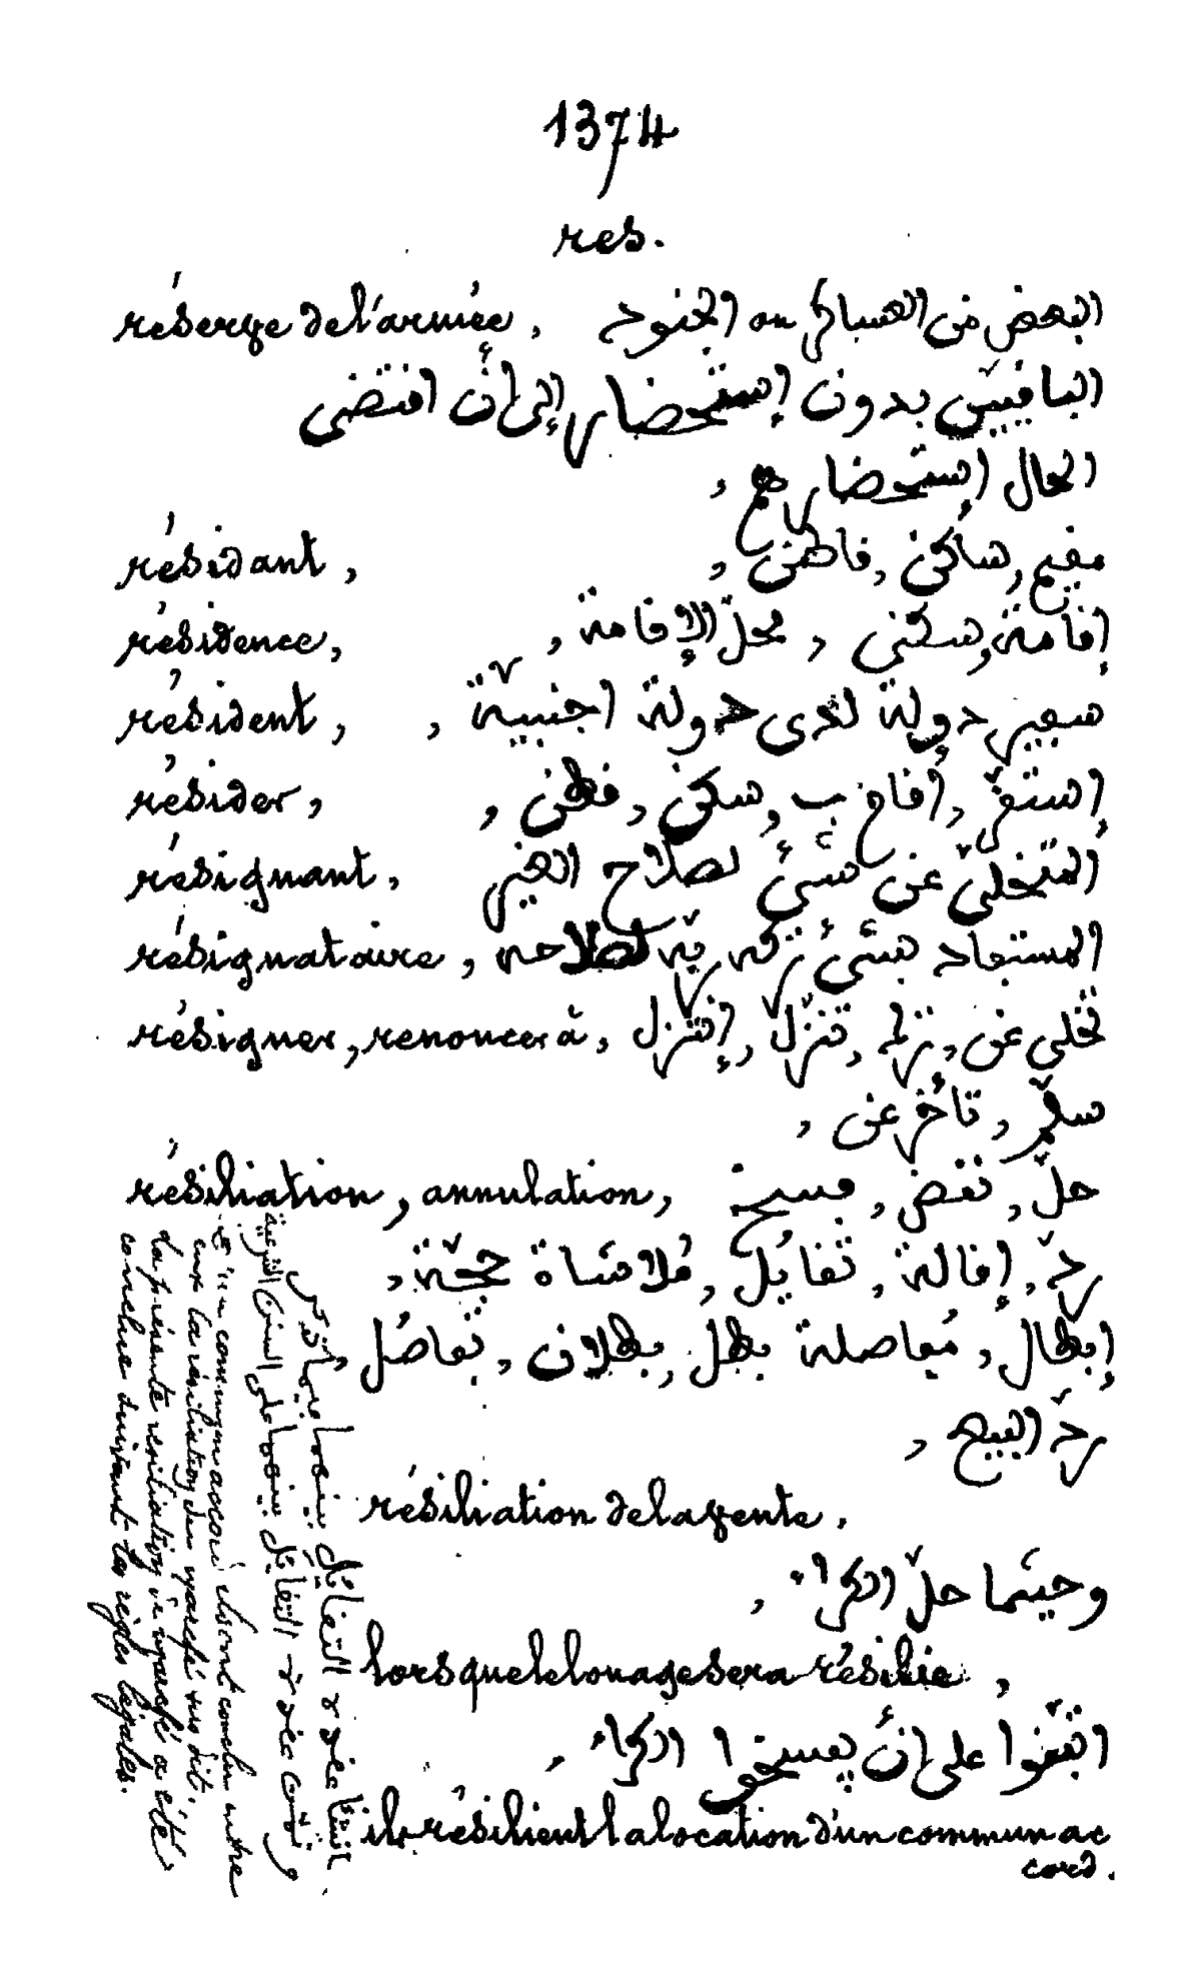 1374
res.
réserve de l'armée, البعض من العساكر ou الجنود
الباقيين بدون إستحضار إلى أن اقتضى
الحال إستحضارهم,
résidant, مقيم, ساكن, قاطن,
résidence, إقامة, سكنى, محلّ الإقامة,
résident, سفير دولة لدى دولة اجنبيّة,
résider, إستقرّ, أقام ب, سكن, قطن,
résignant, المتخلّي عن شيئ لصلاح الغير
résignataire, المستفاد بشيئ تركه ربّه لصلاحه
résigner, renoncer à, تخلّى عن, ترك, تنزّل, إنتزل
سلّم, تأخّر عن,
résiliation, annulation, حلّ, نقض, فسخ
ردّ, إقالة, تقايُل, مُلاشاة حجّة,
إبطال, مُفاصلة بطل, بطلان, تفاصُل,
ردّ البيع,
résiliation de la vente.
وحيثما حلّ الكراء,
lorsque le louage sera résilié,
اتّفقوا على أن يفسخوا الكراء,
ils résilient la location d'un commun ac
cord.
انشأ عقدة التقايُل بينهما فيما ذكر
وتمّت عقدة التقايُل بينهما على السنن الشرعية
d'un commun accord ils ont conclu entre
eux la résiliation du marché sus dit.
la présente résiliation de marché a été
conclue suivant les règles légales.